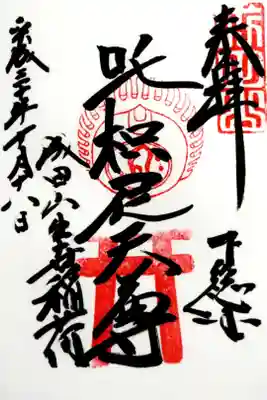 奉拝
下総国
吒枳尼天尊
成田山出世稲荷
平成三十年十月十八日